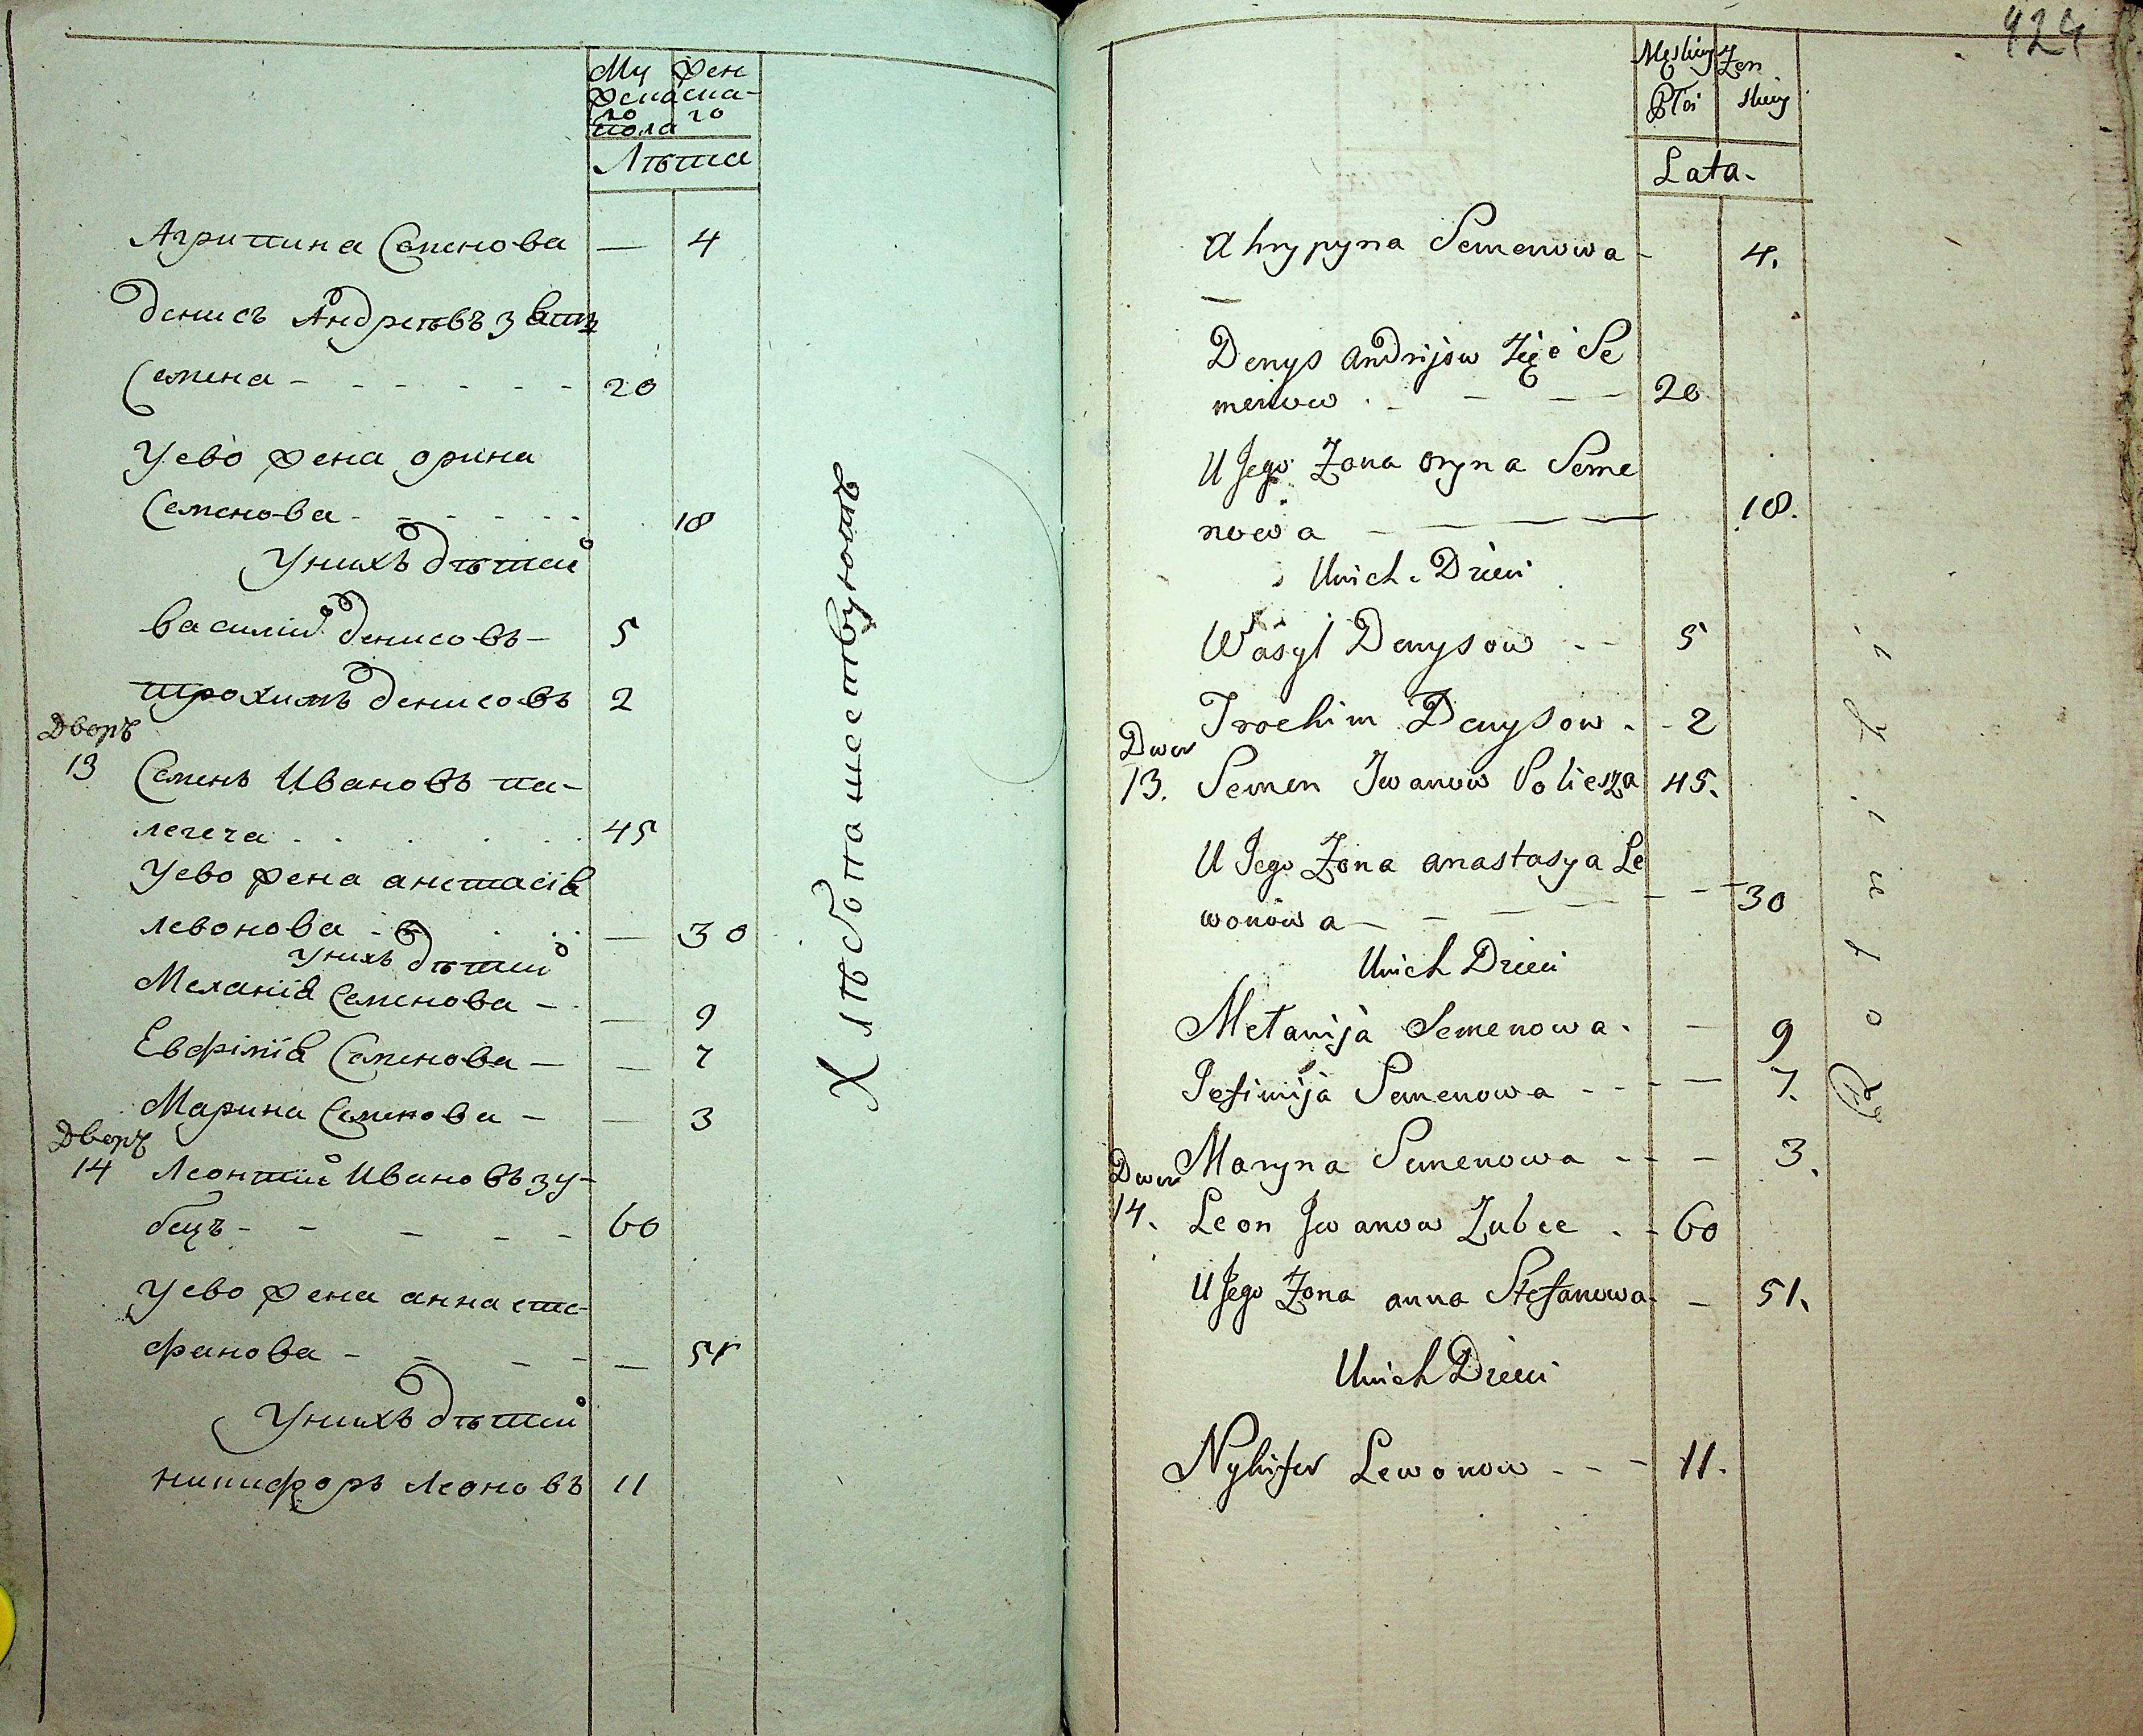 Му Жен
жескаска-
го го
пола
Лѣта
Агрипина Семенова — 4
денисъ Андреѣвъ зять
Семена - - - - - - 20
Уево жена орина
Семенова - - - - - - 18
Унихъ дѣтей
василий денисовъ — 5
трохимъ денисовъ 2
Дворъ
13 Семенъ Ивановъ па-
легеча . . . . . 45
Уево жена анстасія
левонова - - — 30
Унихъ дѣтей
Меланія Семенова — — 9
Евфімія Семенова — — 7
Марина Семенова — — 3
Дворъ
14 Леонтий Ивановъ зу-
бецъ - - - - - 60
Уево жена анна сте-
фанова - - - - — 51
Унихъ дѣтей
никифоръ Леоновъ 11
Хлѣбопашествуютъ
424
Męskiey Zen
Płci skiey
Lata.
Ahrypyna Semenowa - 4.
Denys Andrijow Zięć Se
menow . - - - 20
U Jego Zona oryna Seme
nowa — — — — 18.
Unich Dzieci
Wasyl Denysow - - 5
Trochim Denysow . - 2
Dwor
13. Semen Jwanow Poliesza 45.
U Jego Zona anastasya Le
wonowa — - - - - 30
Unich Dzieci
Mełanija Semenowa . — 9
Jefimija Semenowa - - - — 7.
Maryna Semenowa - - — 3.
Dwor
14. Leon Jwanow Zubec . - 60
U Jego Zona anna Stefanowa - — 51.
Unich Dzieci
Nykifor Lewonow - - - 11.
Rolnicy i